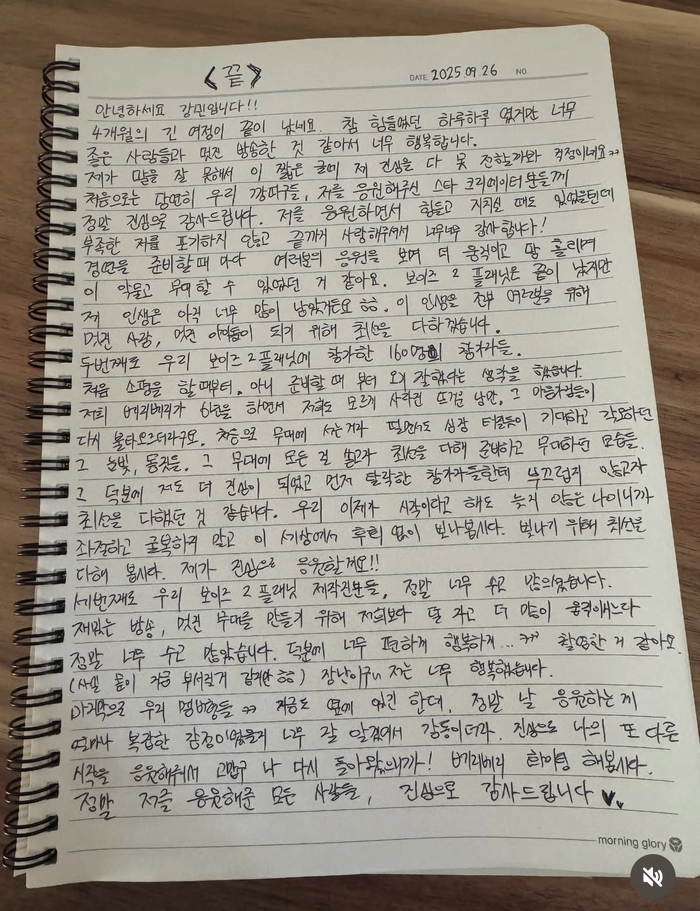 <끝>
DATE 2025.09.26 NO.
안녕하세요 강민입니다!!
4개월의 긴 여정이 끝이 났네요. 참 힘들었던 하루하루 였지만 너무
좋은 사람들과 멋진 방송한 것 같아서 너무 행복합니다.
제가 말을 잘 못해서 이 짧은 글에 제 진심을 다 못 전할까봐 걱정이네요ㅠㅠ
처음으로는 당연히 우리 깡따구들, 저를 응원해주신 스타 크리에이터 분들께
정말 진심으로 감사드립니다. 저를 응원하면서 힘들고 지치실 때도 있었을텐데
부족한 저를 포기하지 않고 끝까지 사랑해주셔서 너무너무 감사합니다!
경연을 준비할 때 마다 여러분의 응원을 보며 더 움직이고 땀 흘리며
이 악물고 무대할 수 있었던 거 같아요. 보이즈 2 플래닛은 끝이 났지만
제 인생은 아직 너무 많이 남았거든요 ㅎㅎ. 이 인생을 전부 여러분을 위해
멋진 사람, 멋진 아이돌이 되기 위해 최선을 다하겠습니다.
두번째로 우리 보이즈 2 플래닛에 참가한 160명의 참가자들.
처음 소떙을 할 때부터. 아니 준비할 때 부터 오기 잘했다는 생각을 했습니다.
저희 베리베리가 6년을 하면서 저희도 모르게 사라진 뜨거운 낭만, 그 마음가짐들이
다시 불타오르더라구요. 처음으로 무대에 서는거라 떨면서도 심장 터질듯이 기대하고 각오하던
그 눈빛, 몸짓들. 그 무대에 모든 걸 쏟고자 최선을 다해 준비하고 무대하던 모습들.
그 덕분에 저도 더 진심이 되었고 먼저 탈락한 참가자들한테 부끄럽지 않고자
최선을 다했던 것 같습니다. 우리 이제가 시작이라고 해도 늦지 않은 나이니까
좌절하고 굴복하지 말고 이 세상에서 후회 없이 빛나봅시다. 빛나기 위해 최선을
다해 봅시다. 제가 진심으로 응원할게요!!
세번째로 우리 보이즈 2 플래닛 제작진분들, 정말 너무 수고 많으셨습니다.
재밌는 방송, 멋진 무대를 만들기 위해 저희보다 덜 자고 더 많이 움직이시느라
정말 너무 수고 많았습니다. 덕분에 너무 편하게 행복하게... ㅠㅠ 촬영한 거 같아요.
(사실 몸이 가끔 부서질거 같지만 ㅎㅎ) 장난이구 저는 너무 행복했습니다.
마지막으로 우리 멤버형들 ㅠㅠ 지금도 옆에 있긴 한데, 정말 날 응원하는게
얼마나 복잡한 감정이었을지 너무 잘 알겠어서 감동이더라. 진심으로 나의 또 다른
시작을 응원해줘서 고맙구 나 다시 돌아왔으니까! 베리베리 화이팅 해봅시다.
정말 저를 응원해준 모든 사람들, 진심으로 감사드립니다 ♥♥
morning glory